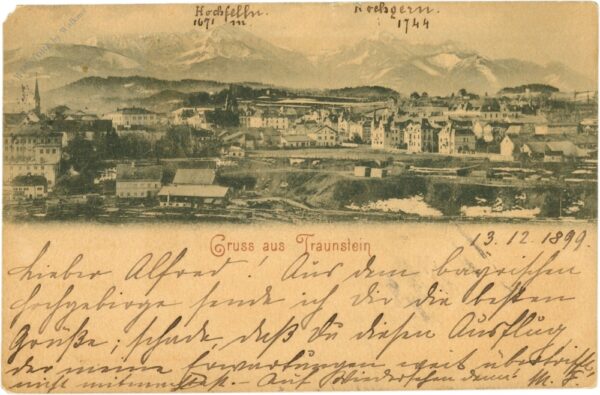 Hochfelln. Hochgern.
1671 m. 1744
Gruss aus Traunstein
13.12.1899
Lieber Alfred! Aus dem bayrischen
Hochgebirge sende ich Dir die besten
Grüße; schade, daß Du diesen Ausflug
der meine Erwartungen weit übertrifft,
nicht mitmachst. - Auf Wiedersehen denn: M. F.